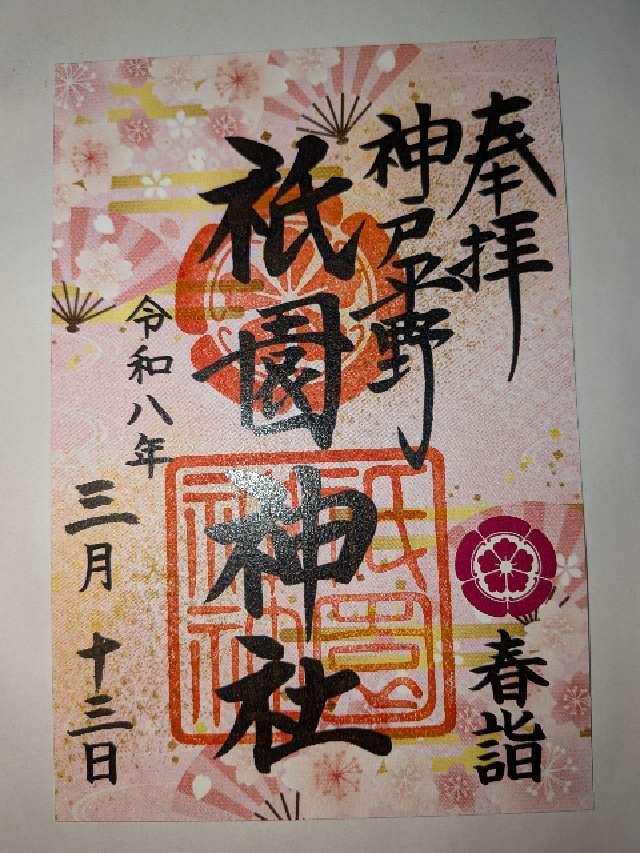 奉拝
神戸平野
祇園神社
令和八年
三月十三日
春詣
祇園
神社